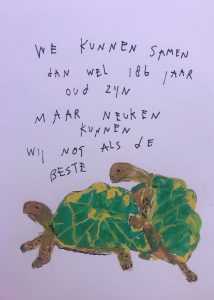 WE KUNNEN SAMEN
dan WEL 186 JAAR
OUD ZYN
MAAR NEUKEN
KUNNEN
WIJ NOG ALS DE
BESTE